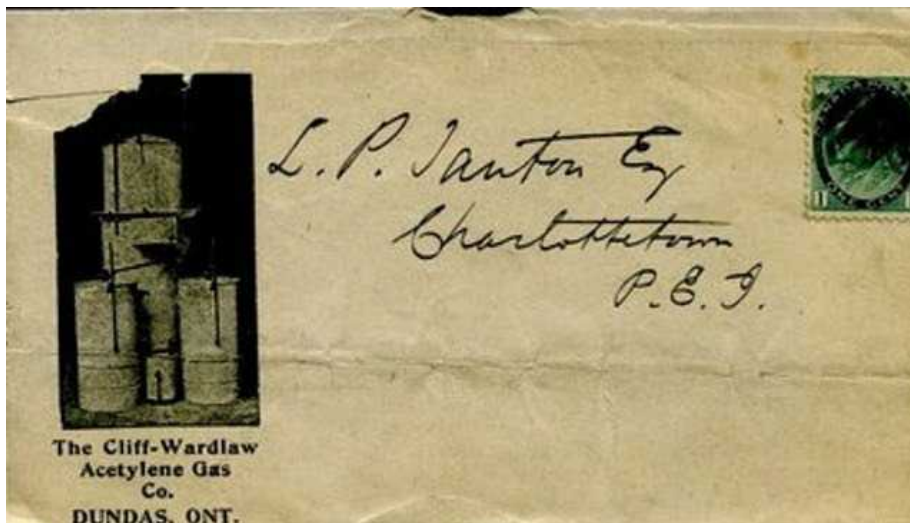 L. P. Tanton Esq
Charlottetown
P.E.I.
The Cliff-Wardlaw
Acetylene Gas
Co.
DUNDAS, ONT.
1